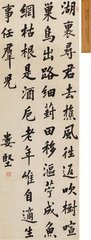 湖裏尋君去樵風往返吹樹喧
巢鳥出路細葑田移漚苧成魚
網枯根是酒卮老年唯自適生
事任群兒
婁堅